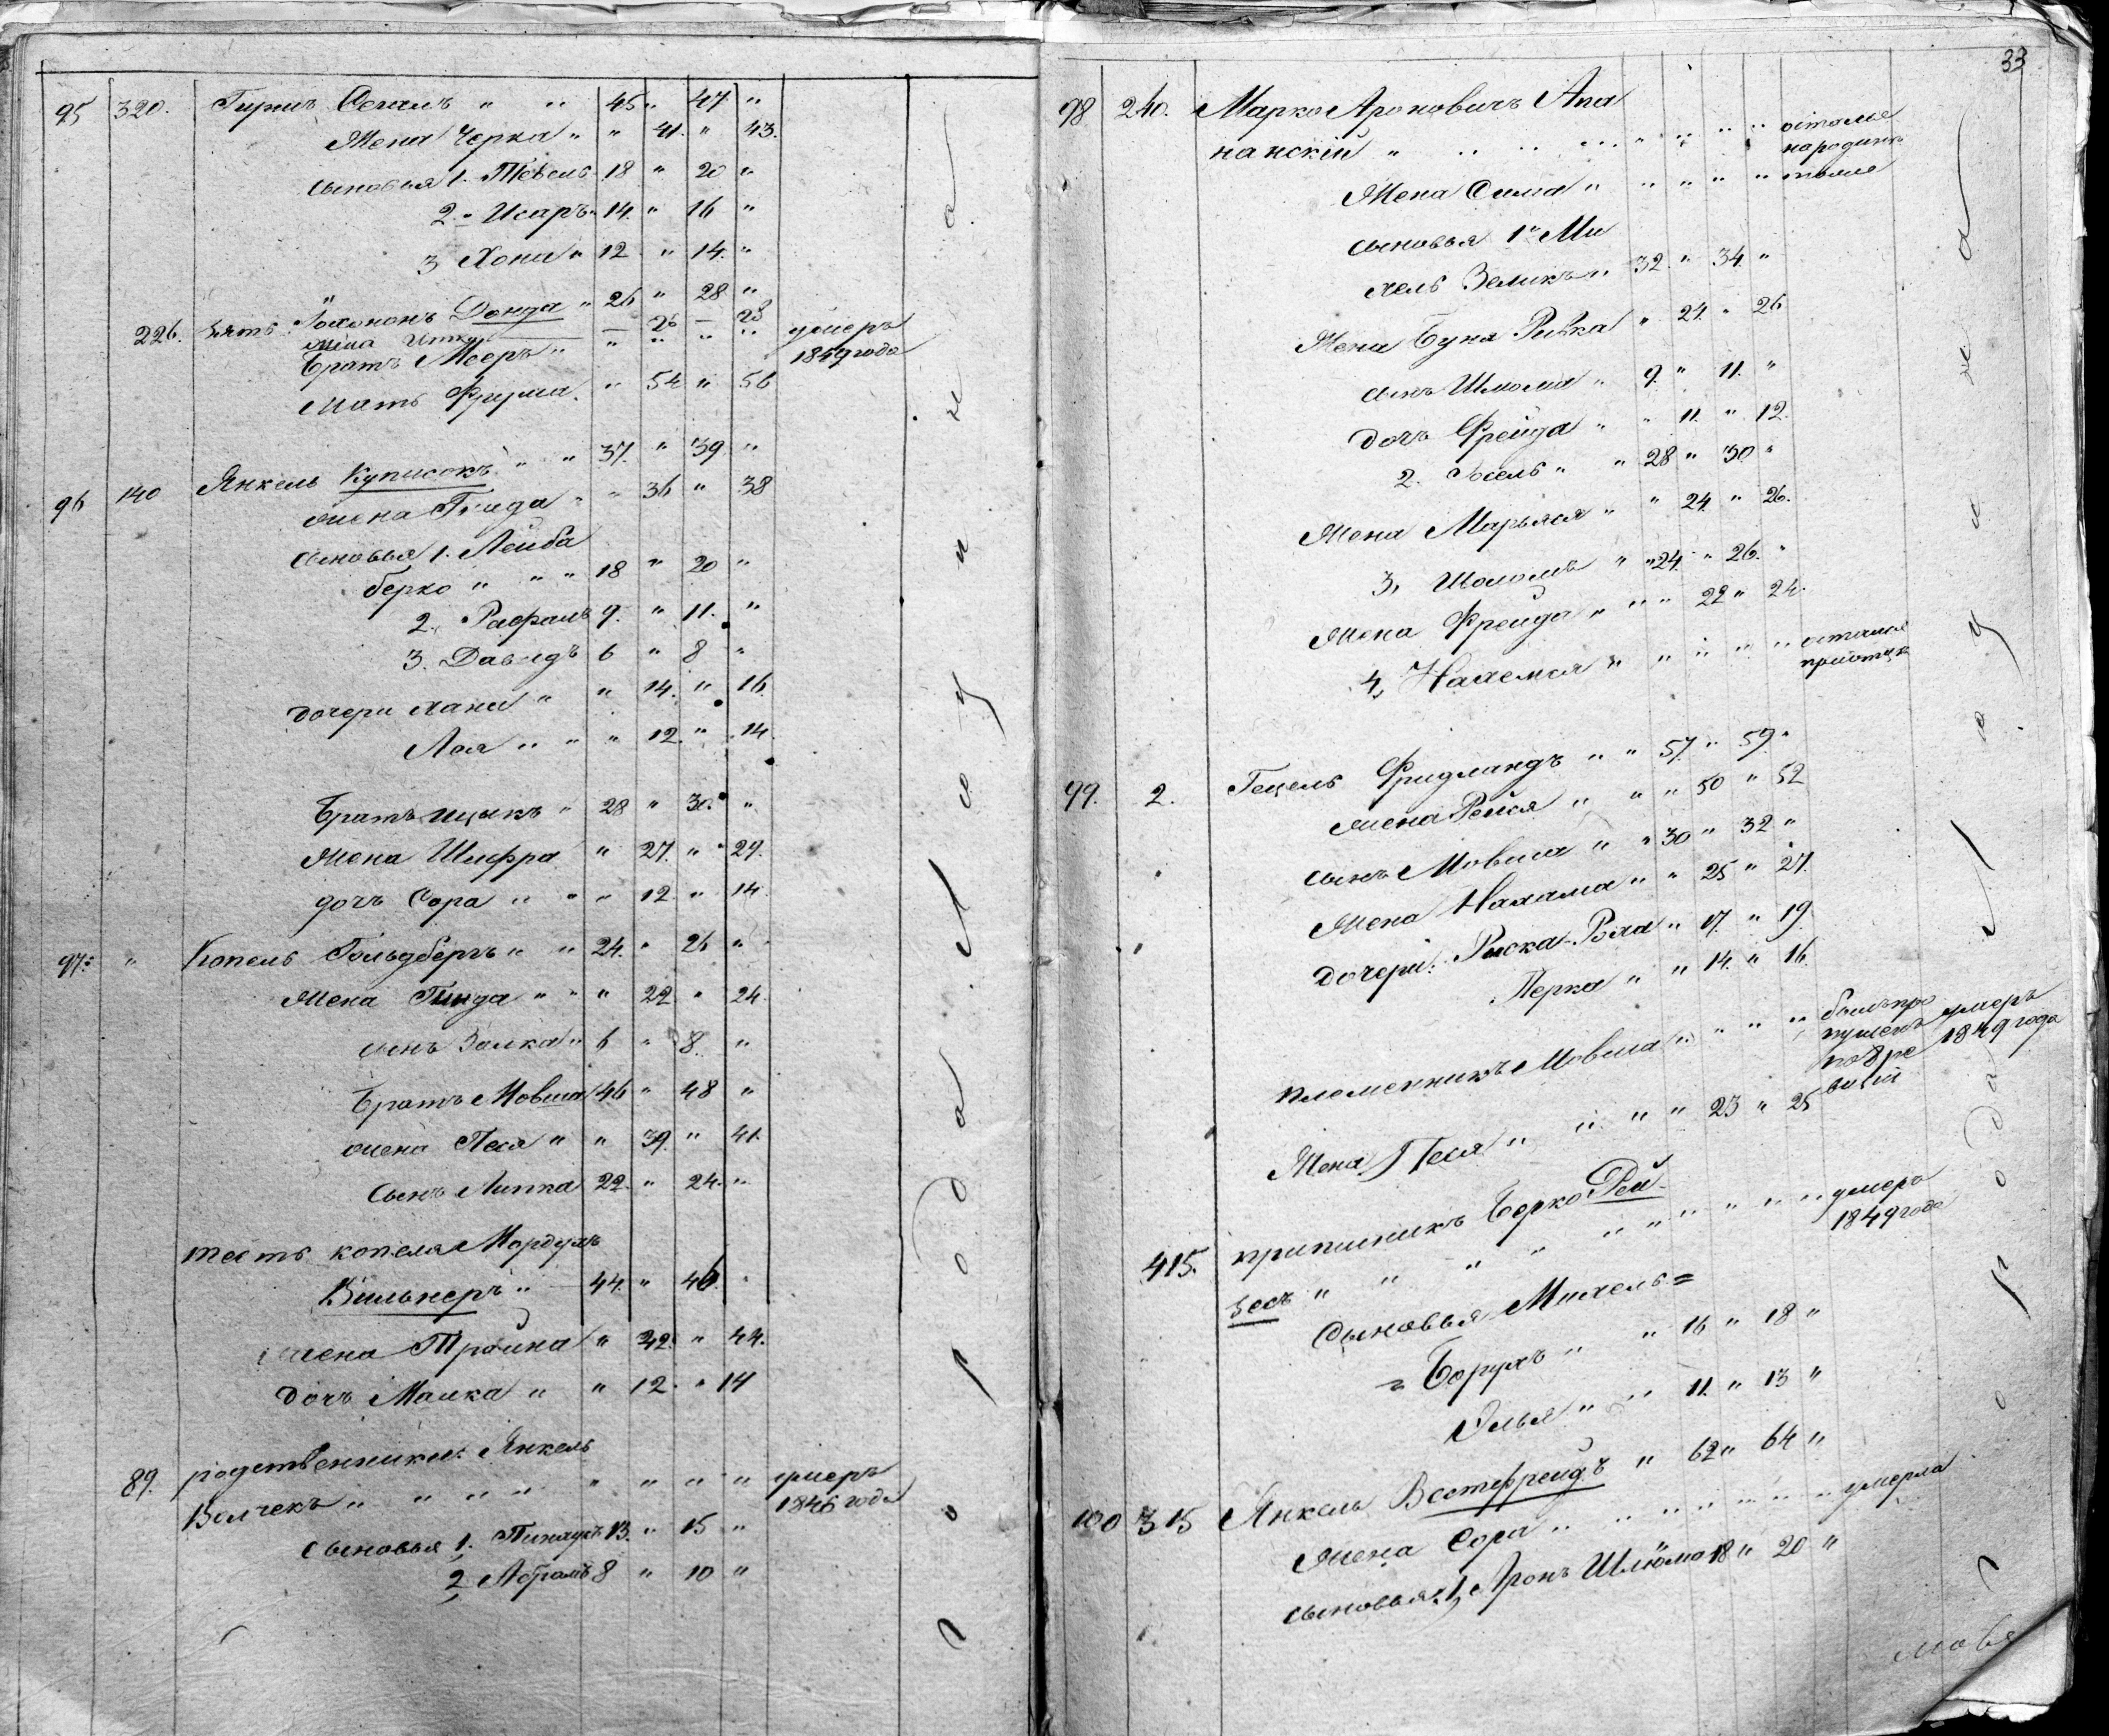 95 320. Гиршъ Сегалъ " " 45 " 47 "
Жена Черка " " 41. " 43.
сыновья 1. Тевель 18 " 20 "
2. " Исаръ " 14. " 16 "
3 Хона " 12 " 14. "
226. зять: Іохононъ Донда " 26 " 28 "
жена Итка — 26 — 28
Братъ Мееръ " " " " " умеръ
1849 года
Мать Фрума. " 54 " 56
96 140 Янкель Куписокъ " " 37. " 39 "
жена Гинда " " 36 " 38
сыновья 1. Лейба
берко " " " 18 " 20 "
2. Рафаилъ 9. " 11. "
3. Давидъ 6 " 8 "
дочери хана " " 14. " 16.
Лея " " " 12. " 14.
Братъ ицыкъ " 28 " 30. "
Жена Шифра " 27. " 29.
дочь Сора " " " 12. " 14
97: " Копель Гольдбергъ " " 24. " 26 "
Жена Гинда " " " 22. " 24.
сынъ Залка " 6 " 8. "
Братъ Мовша 46 " 48 "
жена Песя " " 39. " 41.
Сынъ Липка 22. " 24. "
тесть копеля Мордухъ
Вильнеръ " 44. " 46. "
жена Тройна " 42. " 44.
дочь Малка " " 12. " 14
89. родственники: Янкель
Волчекъ " " " " " " " " умеръ
1846 года
сыновья 1. Пинхусъ 13. " 15 "
2, Абрамъ 8 " 10 "
Новогрудскаго уѣзда
33
98 240. Марко Ароновичъ Апа
нанскій " " " " " " " " осталые
на родинѣ
Жена Сима " " " " " тоже
сыновья 1" Ми
хель Зеликъ " 32. " 34. "
Жена Буна Ривка " 24. " 26
сынъ Шлома " 9. " 11. "
дочь Фрейда " " 11. " 12.
2. Іосель " " 28 " 30 "
Жена Марьяся " " 24. " 26.
3, Шоломъ " " 24. " 26. "
Жена Фрейда " " " 22 " 24.
4, Нахемья " " " " " остался
при отцѣ
99. 2. Гецель Фридландъ " " 57. " 59. "
жена Рейся " " " 50 " 52
сынъ Мовша " " 30 " 32 "
Жена Нахама " " 25 " 27.
дочери: Рыска-Роха " 17. " 19.
Перка " " 14. " 16.
племенникъ Мовша " " " " былъ про умеръ
пущенъ 1849 года
по 8 ре
визіи
Жена Песя " " " " 23 " 25
415. приписникъ Берко Рей-
зесъ " " " " " " " " " умеръ
1849 года
Сыновья Михель =
= Борухъ " " 16 " 18 "
Эльья " " 11. " 13 "
100 315 Янкель Вестефрейдъ " 62 " 64 "
Жена Сора " " " " " " " умерла
сыновья: 1, Аронъ Шлюмо 18 " 20 "